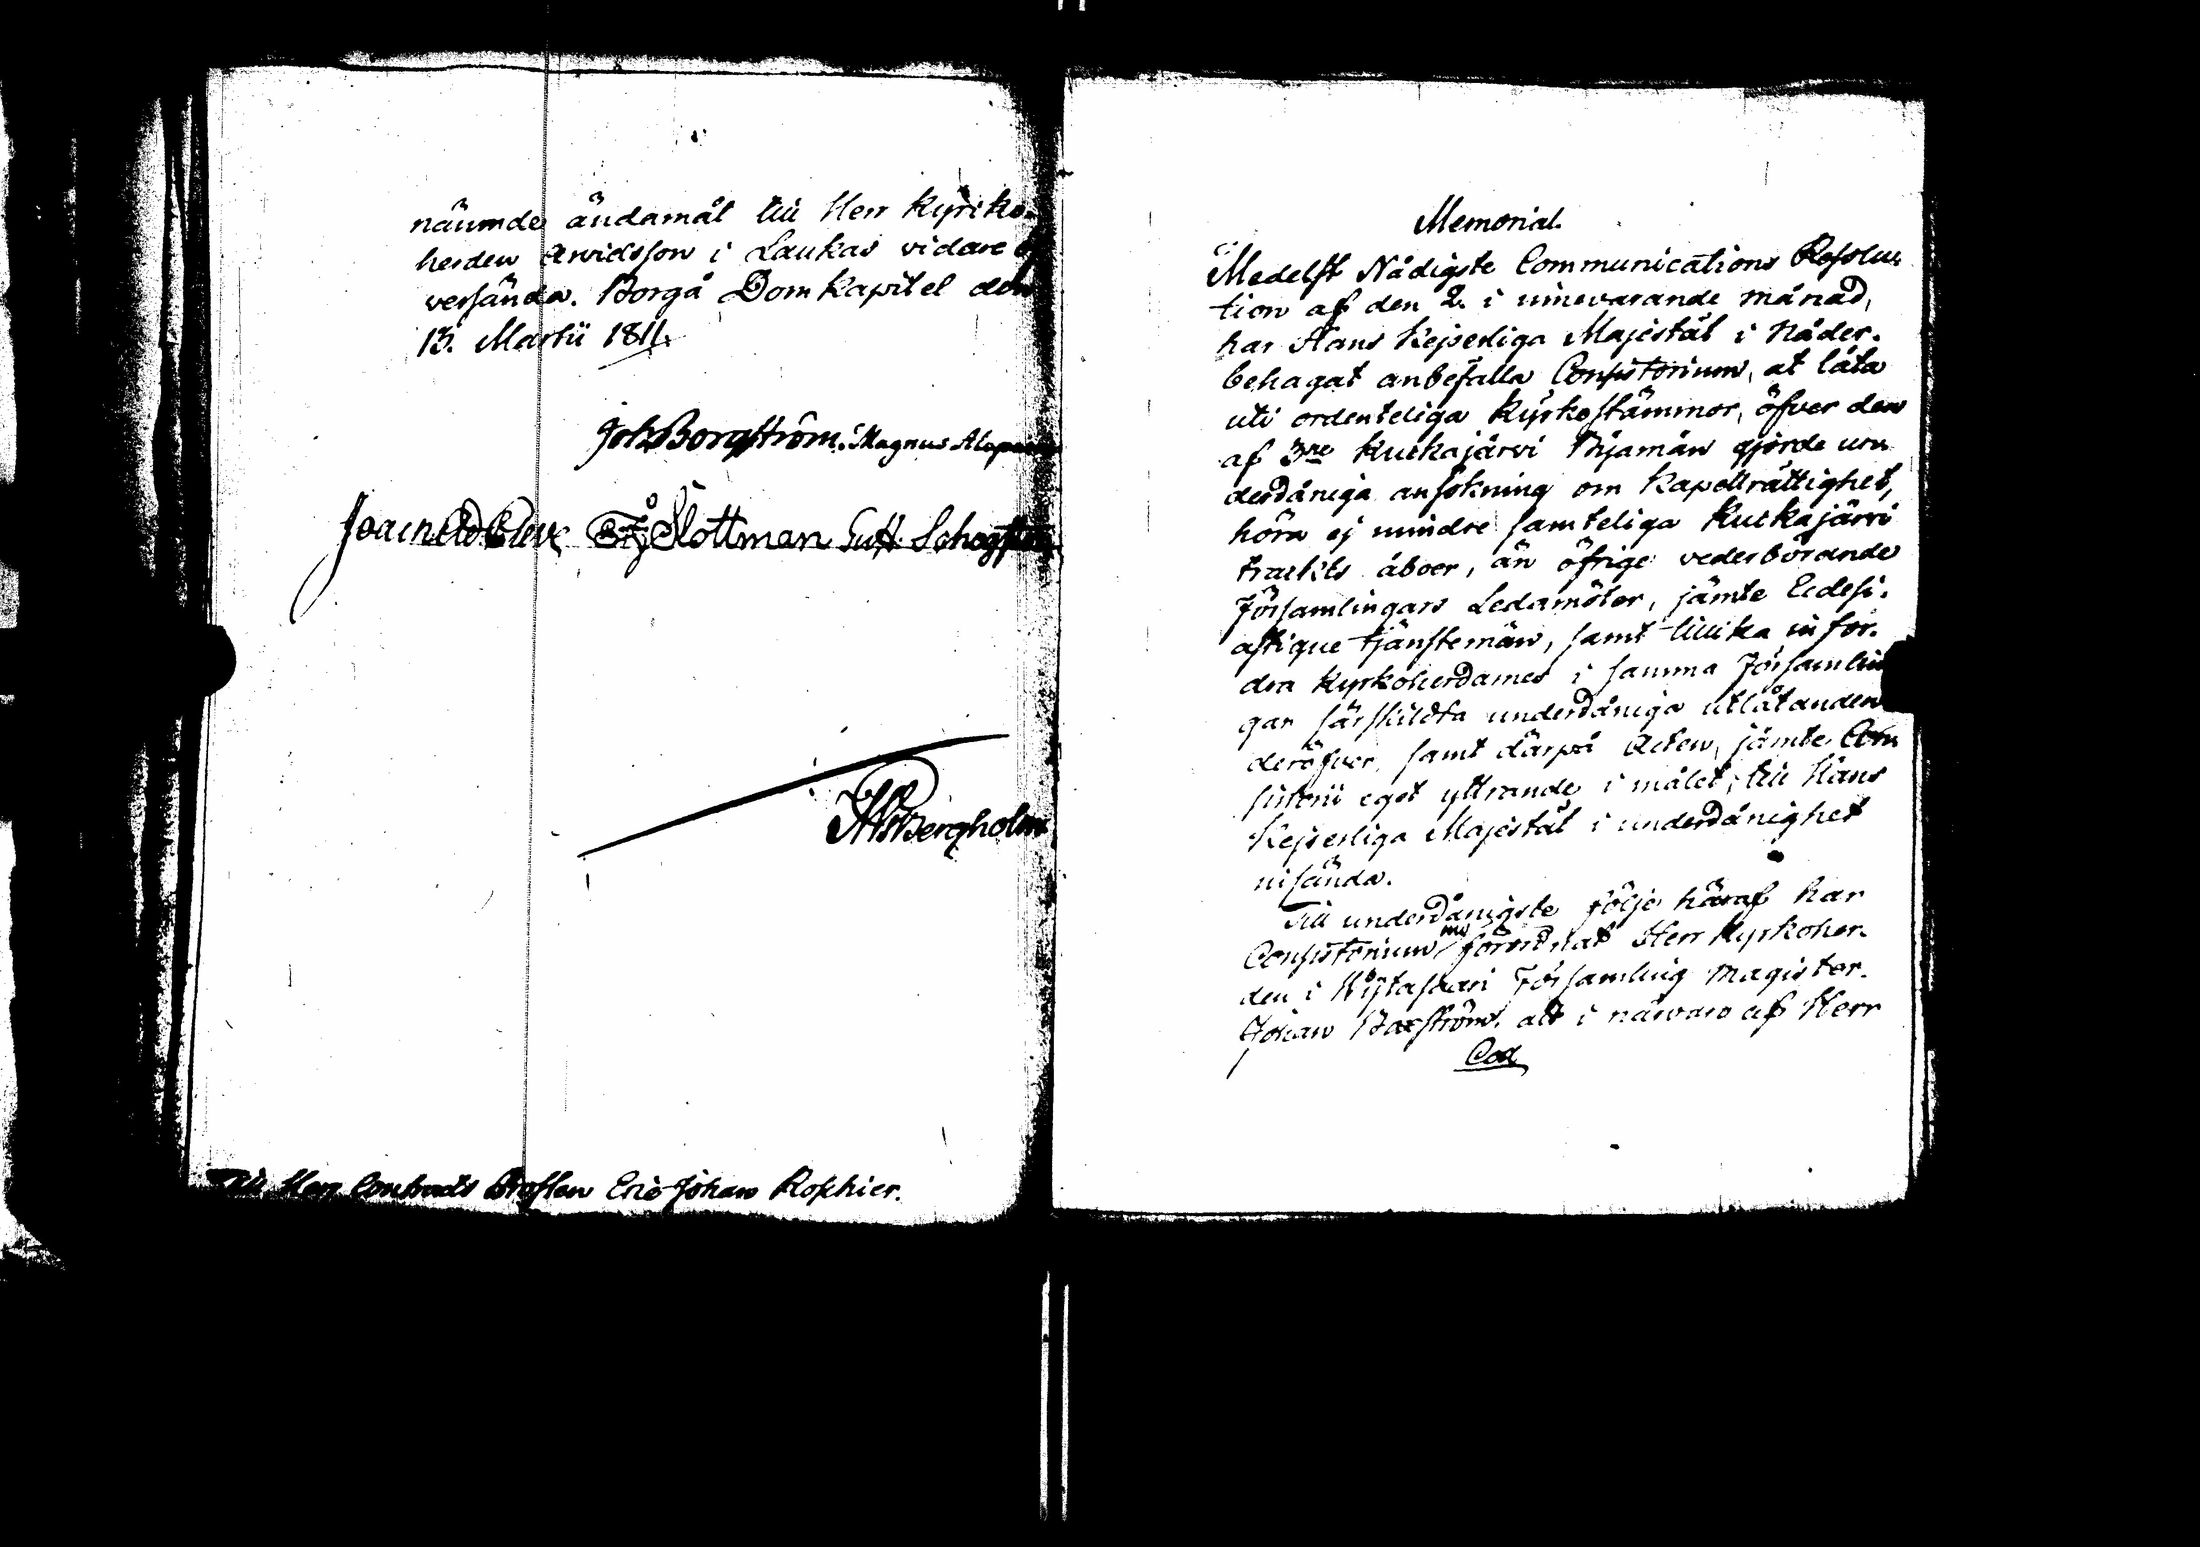 nämnde ändamål till Herr Kyrko-
herden Arvidsson i Laukas vidare
versända. Borgå Dom Kapitel den
13. Martii 1811.
Joh. Borgström. Magnus Alopaeus
Joach. Ad. Cleve Slottman Gust.
Bergholm
Till Herr Contracts Prosten Eric Johan Roschier.
Memorial.
Medelst Nådigste Communications Resolu
tion af den 2. i innevarande månad,
har Hans Kejserliga Majestät i Nåder.
behagat anbefalla Consistorium, at låta
uti ordenteliga Kyrkostämmor, öfver den
af 3ne Kuckajärvi Byamän gjorde un
derdåniga ansökning om Kapellrättighet,
höra ej mindre samteliga Kuckajärvi
trackts åboer, än öfrige vederbörande
Församlingars Ledamöter, jämte Eclesi-
astique tjänstemän, samt tillika infor-
dra Kyrkoherdarnes i samma Församlin
gar särskildta underdåniga utlåtanden
deröfver, samt därpå Acten, jämte Con
sistorii eget yttrande i målet, till Hans
Kejserliga Majestät i underdånighet
insända.
Till underdånigste följe häraf har
Consistorium nu förordnat Herr Kyrkoher-
den i Wijtasaari Församling Magister
Johan Boxström, at i närvaro af Herr